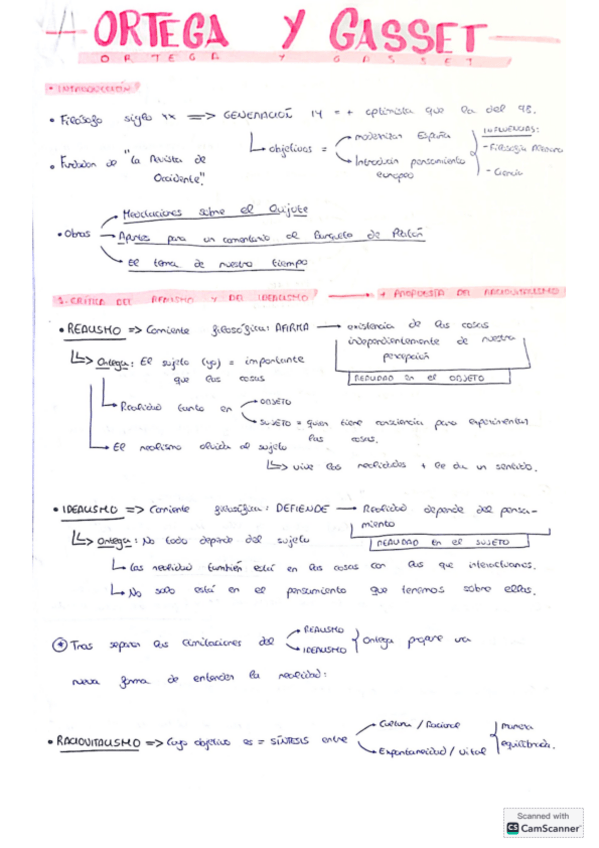 ORTEGA Y GASSET
ORTEGA Y GASSET
• INTRODUCCIÓN
• Filósofo siglo XX => GENERACIÓN 14 = + optimista que la del 98.
objetivos = modernizar España
Introducir pensamiento europeo
INFLUENCIAS:
- Filosofía
- Ciencia
• Fundador de "la Revista de Occidente".
• Obras
Meditaciones sobre el Quijote
Apuntes para un comentario al Banquete de Platón
El tema de nuestro tiempo
1. CRÍTICA DEL REALISMO Y DEL IDEALISMO → + PROPUESTA DEL RACIOVITALISMO
• REALISMO => Corriente filosófica: AFIRMA → existencia de las cosas
independientemente de nuestra
percepción
REALIDAD en el OBJETO
Ortega: El sujeto (yo) = importante
que las cosas
Realidad tanto en
OBJETO
SUJETO = quien tiene consciencia para experimentar
las cosas.
El realismo olvida al sujeto
vive las realidades + le da un sentido.
• IDEALISMO => Corriente filosófica: DEFIENDE → Realidad depende del pensa-
miento
REALIDAD en el SUJETO
Ortega: No todo depende del sujeto
Las realidad también está en las cosas con las que interactuamos.
No solo está en el pensamiento que tenemos sobre ellas.
Tras separar las limitaciones del
REALISMO
IDEALISMO
Ortega propone una
nueva forma de entender la realidad:
• RACIOVITALISMO => Cuyo objetivo es = SÍNTESIS entre
Cultura / Racional
Espontaneidad / Vital
manera
equilibrada.
Scanned with
CS CamScanner